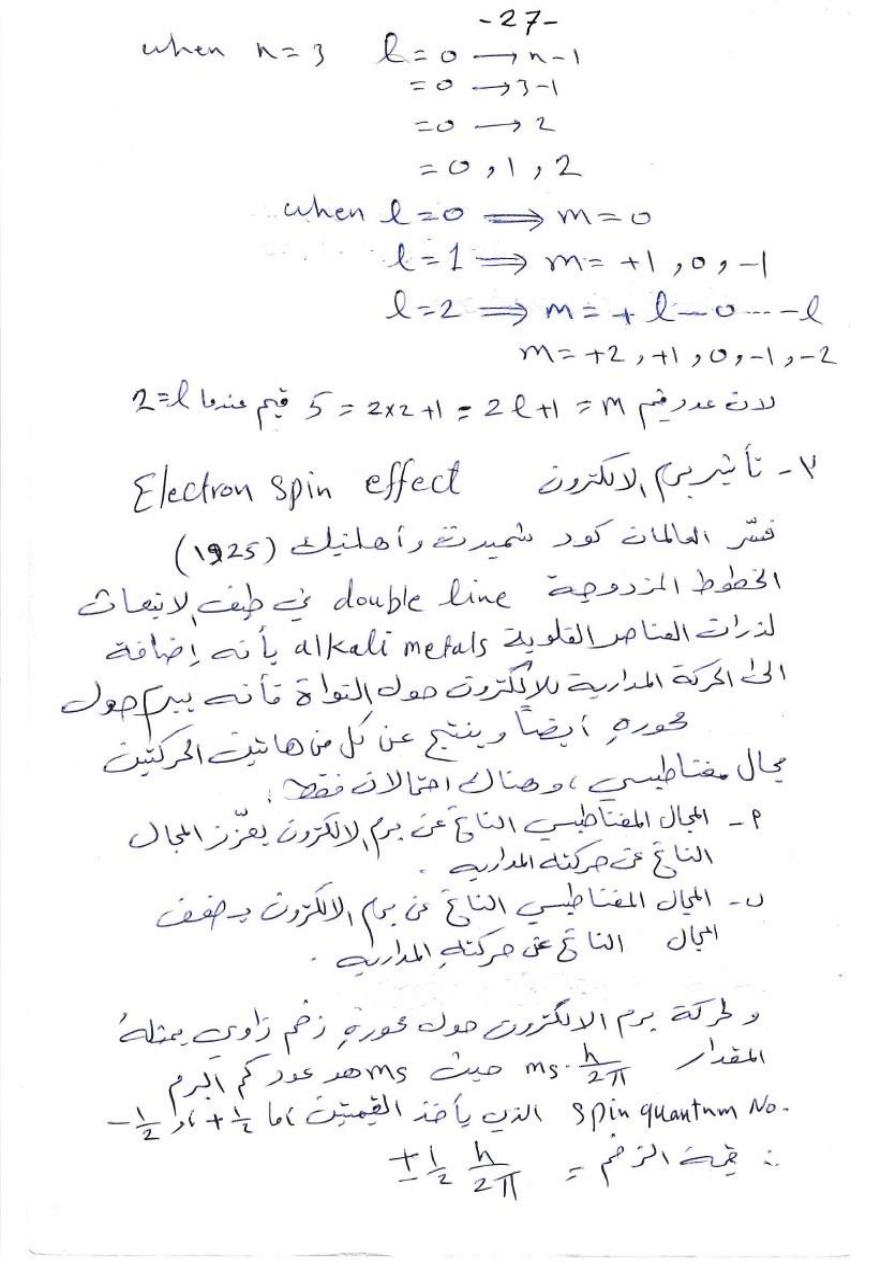 -27-
when n=3 l=0 → n-1
=0 → 3-1
=0 → 2
=0, 1, 2
when l=0 ⟹ m=0
l=1 ⟹ m= +1, 0, -1
l=2 ⟹ m= + l---0--- -l
m= +2, +1, 0, -1, -2
لان عدد قيم m = 2l+1 = 2x2+1 = 5 قيم عندما l=2
٣- تأثير برم الالكترون Electron spin effect
فسّر العالمان كود شميدت وأهلنبك (1925)
الخطوط المزدوجة double line في طيف الانبعاث
لذرات العناصر القلوية alkali metals بأنه إضافة
الى الحركة المدارية للإلكترون حول النواة فأنه يبرم حول
محورهِ أيضاً وينتج عن كل من هاتين الحركتين
مجال مغناطيسي، وهناك احتمالان فقط:
أ- المجال المغناطيسي الناتج عن برم الالكترون يعزّز المجال
الناتج عن حركته المدارية.
ب- المجال المغناطيسي الناتج عن برم الالكترون يضعف
المجال الناتج عن حركتهِ المدارية.
ولحركة برم الالكترون حول محورهِ زخم زاوي يمثلهُ
المقدار ms. h/2π حيث ms هو عدد كم البرم
Spin quantum No. الذي يأخذ القيمتين اما +1/2 او -1/2
∴ قيمة الزخم = ±1/2 h/2π